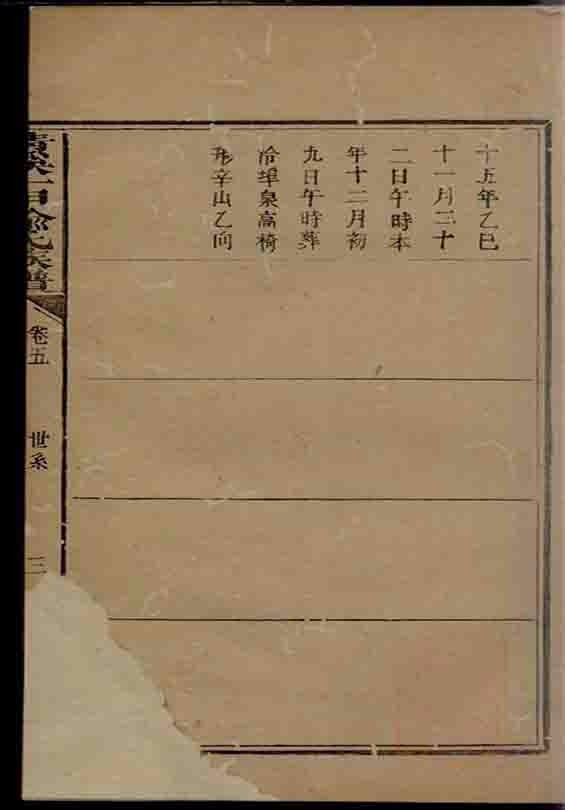 十五年乙巳
十一月二十
二日午時本
年十二月初
九日午時葬
冷埠泉高椅
形辛山乙向
氏家譜
卷五
世系
三